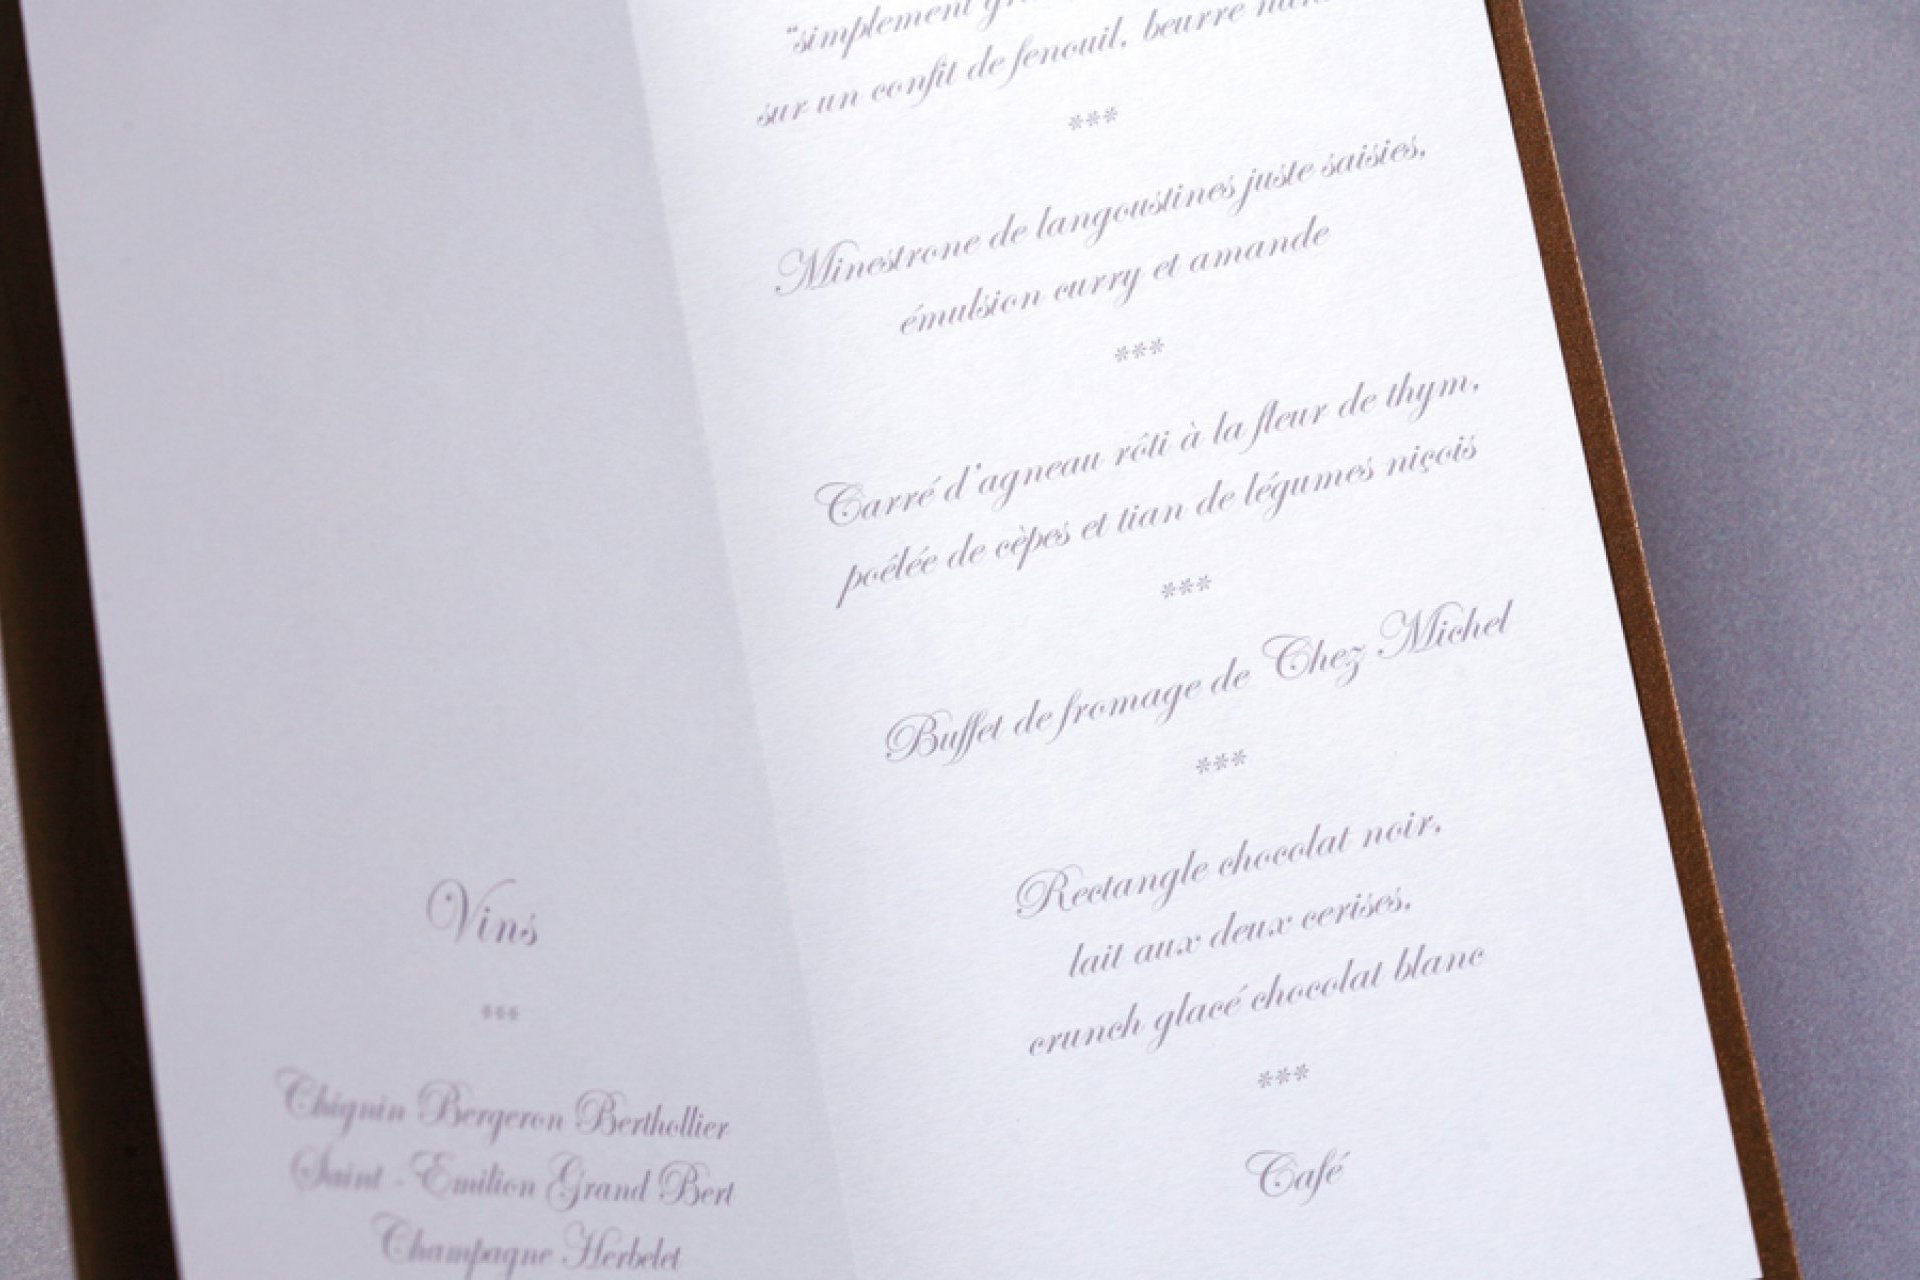 Vins
***
Chignin Bergeron Berthollier
Saint - Emilion Grand Bert
Champagne Herbelet
"simplement
sur un confit de fenouil, beurre
***
Minestrone de langoustines juste saisies,
émulsion curry et amande
***
Carré d'agneau rôti à la fleur de thym,
poêlée de cèpes et tian de légumes niçois
***
Buffet de fromage de Chez Michel
***
Rectangle chocolat noir,
lait aux deux cerises,
crunch glacé chocolat blanc
***
Café